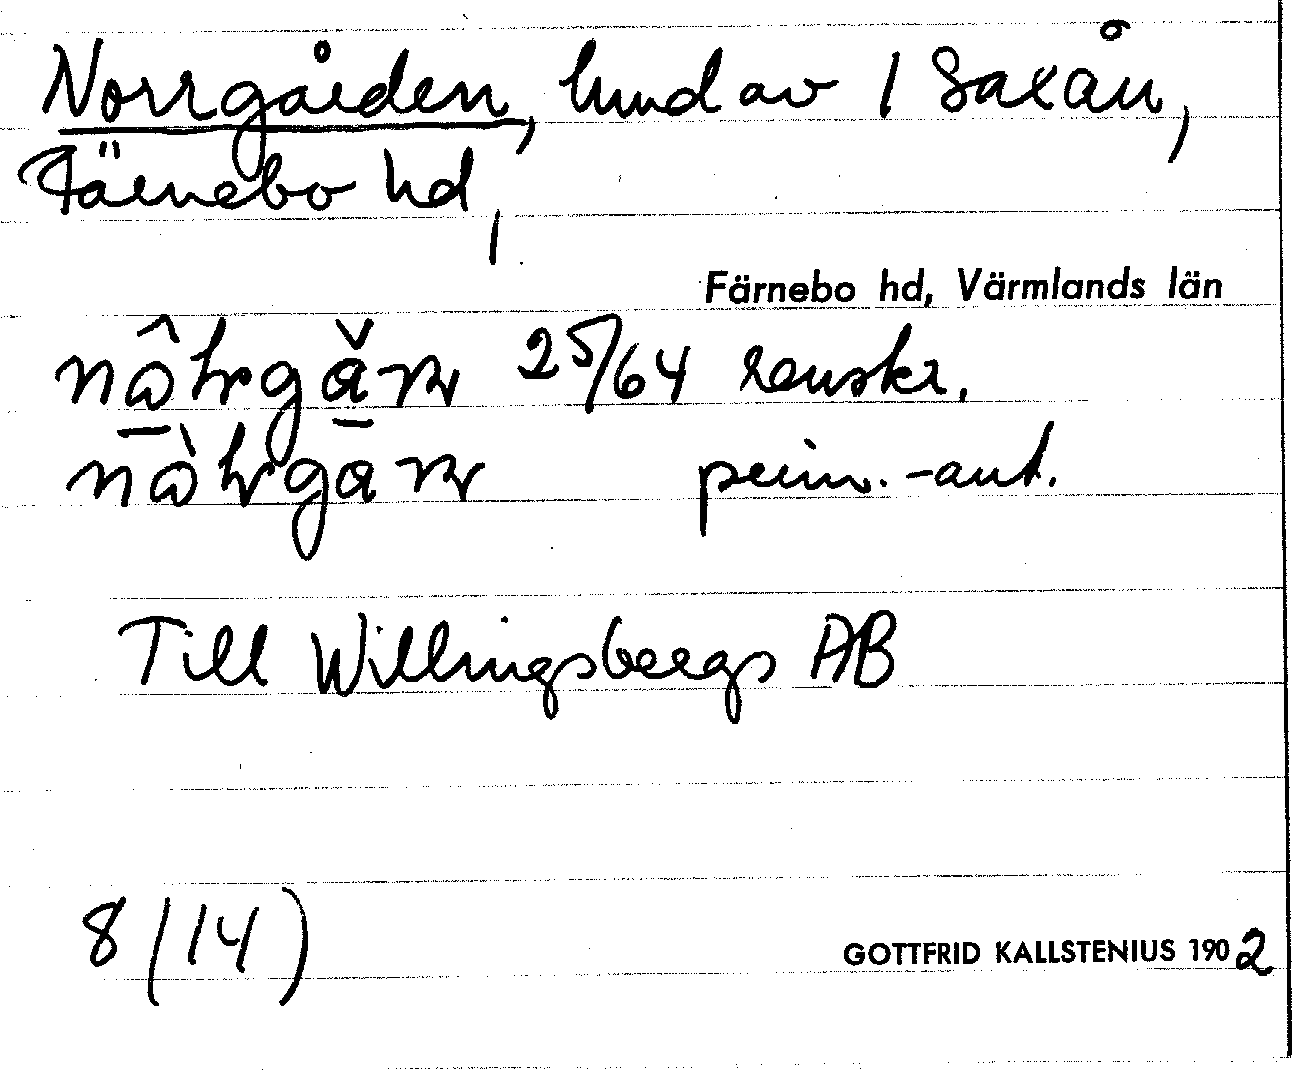 Norrgården, hmd av 1 Saxån,
Färnebo hd,
Färnebo hd, Värmlands län
25/64 renskr.
prim.-ant.
Till Willingsbergs AB
8 (14)
GOTTFRID KALLSTENIUS 1902